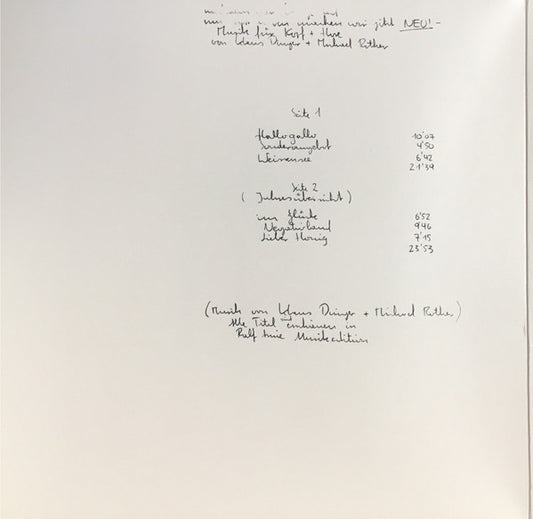 NEU! -
Musik für Kopf + Hose
von Klaus Dinger + Michael Rother
Seite 1
Hallogallo 10'07
Sonderangebot 4'50
Weissensee 6'42
21'39
Seite 2
(Jahresübersicht)
im Glücke 6'52
Negativland 9'46
Lieber Honig 7'15
23'53
(Musik von Klaus Dinger + Michael Rother)
Alle Titel erschienen in
Ralf Arnie Musikedition